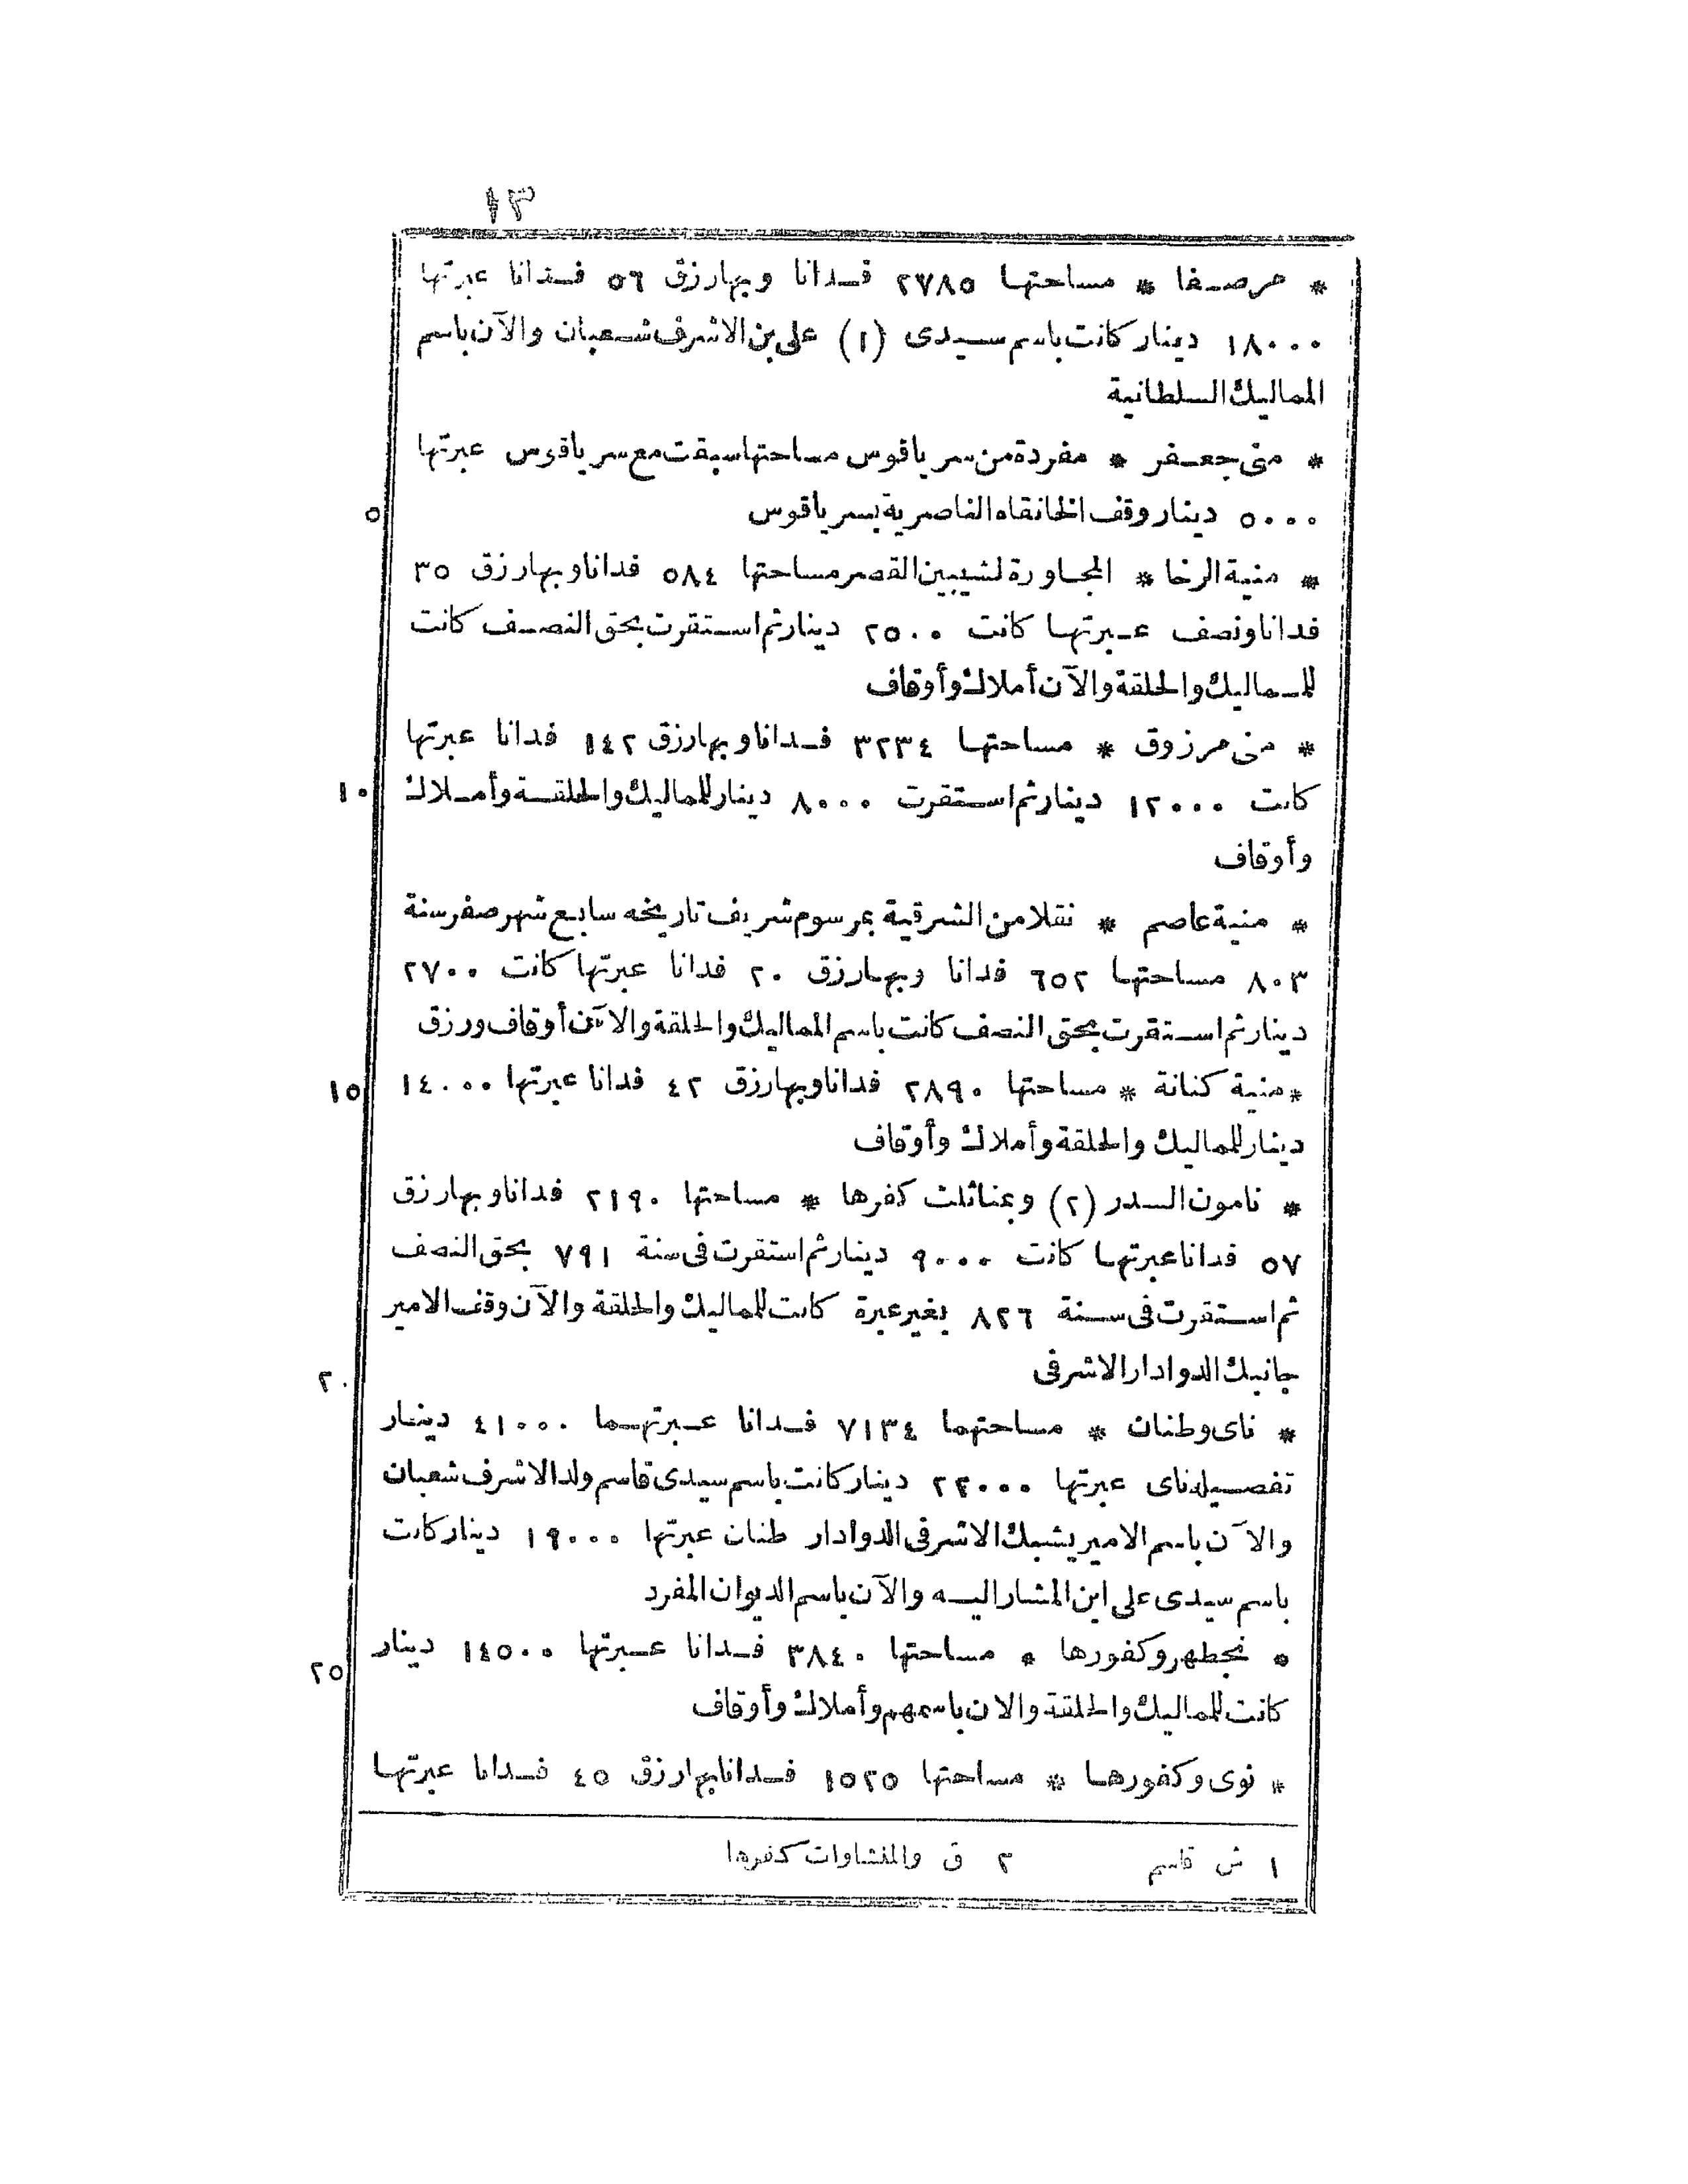 ١٣
* مرصفا * مساحتها ٢٧٨٥ فدانا وبهارزق ٥٦ فدانا عبرتها
١٨٠٠٠ دينار كانت باسم سيدى (١) على بن الاشرف شعبان والآن باسم
المماليك السلطانية
* منى جعفر * مفردة من سرياقوس مساحتها سبقت مع سرياقوس عبرتها
٥٠٠٠ دينار وقف الخانقاه الناصرية بسرياقوس
٥
* منية الرخا * المجاورة لشيبين القصر مساحتها ٥٨٤ فدانا وبهارزق ٣٥
فدانا ونصف عبرتها كانت ٢٥٠٠ دينار ثم استقرت بحق النصف كانت
للمماليك والحلقة والآن أملاك وأوقاف
* منى مرزوق * مساحتها ٣٢٣٤ فدانا وبهارزق ١٤٢ فدانا عبرتها
كانت ١٢٠٠٠ دينار ثم استقرت ٨٠٠٠ دينار للمماليك والحلقة وأملاك
١٠
وأوقاف
* منية عاصم * نقلا من الشرقية بمرسوم شريف تاريخه سابع شهر صفر سنة
٨٠٣ مساحتها ٦٥٢ فدانا وبهارزق ٢٠ فدانا عبرتها كانت ٢٧٠٠
دينار ثم استقرت بحق النصف كانت باسم المماليك والحلقة والآن أوقاف ورزق
* منية كنانة * مساحتها ٢٨٩٠ فدانا وبهارزق ٤٢ فدانا عبرتها ١٤٠٠٠
١٥
دينار للمماليك والحلقة وأملاك وأوقاف
* نامون السدر (٢) وبمناثلت كفرها * مساحتها ٢١٩٠ فدانا وبهارزق
٥٧ فدانا عبرتها كانت ٩٠٠٠ دينار ثم استقرت فى سنة ٧٩١ بحق النصف
ثم استقرت فى سنة ٨٢٦ بغير عبرة كانت للمماليك والحلقة والآن وقف الامير
جانبك الدوادار الاشرفى
٢٠
* ناى وطنان * مساحتهما ٧١٣٤ فدانا عبرتهما ٤١٠٠٠ دينار
تفصيله ناى عبرتها ٢٢٠٠٠ دينار كانت باسم سيدى قاسم ولد الاشرف شعبان
والآن باسم الامير يشبك الاشرفى الدوادار طنان عبرتها ١٩٠٠٠ دينار كانت
باسم سيدى على ابن المشار اليه والآن باسم الديوان المفرد
* نجطهر وكفورها * مساحتها ٣٨٤٠ فدانا عبرتها ١٤٥٠٠ دينار
٢٥
كانت للمماليك والحلقة والان باسمهم وأملاك وأوقاف
* نوى وكفورها * مساحتها ١٥٢٥ فدانا بهارزق ٤٥ فدانا عبرتها
١ ش قاسم ٢ ق والمنشاوات كفرها